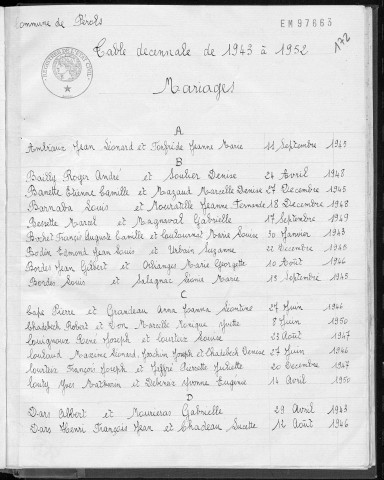 Commune de Pérols
EM97663
172
Table décennale de 1943 à 1952
Mariages
A
Ambiaux Jean Léonard et Jeanne Marie 11 Septembre 1945
B
Bailly Roger André et Soulier Denise 24 Avril 1948
Banette Etienne Camille et Mazaud Marcelle Denise 27 Décembre 1945
Barnaba Louis et Mouratille Jeanne Fernande 18 Décembre 1948
Bessette Marcel et Magnaval Gabrielle 17 Septembre 1949
Bochet François Auguste Camille et Marie Louise 30 Janvier 1943
Bodin Edmond Jean Louis et Urbain Suzanne 22 Décembre 1945
Bordes Jean Gilbert et Ollanges Marie Georgette 10 Août 1946
Bordes Louis et Salagnac Léonie Marie 15 Septembre 1945
C
Cape Pierre et Grandeau Anna Joanna Léontine 27 Juin 1946
Chadebech Robert et Don Marcelle Monique Yvette 8 Juin 1950
Couignoux René Joseph et Courteix Louise 23 Août 1947
Coulaud Maxime Léonard Joachim Joseph et Chadebech Denise 27 Juin 1946
Courteix François Joseph et Jeffré Pierrette Juliette 20 Décembre 1947
Couty Yves Mathurin et Delbrnaz Yvonne Eugénie 14 Avril 1950
D
Dars Albert et Mourieras Gabrielle 29 Avril 1943
Dars Henri François Jean et Chadeau Lucette 12 Août 1946